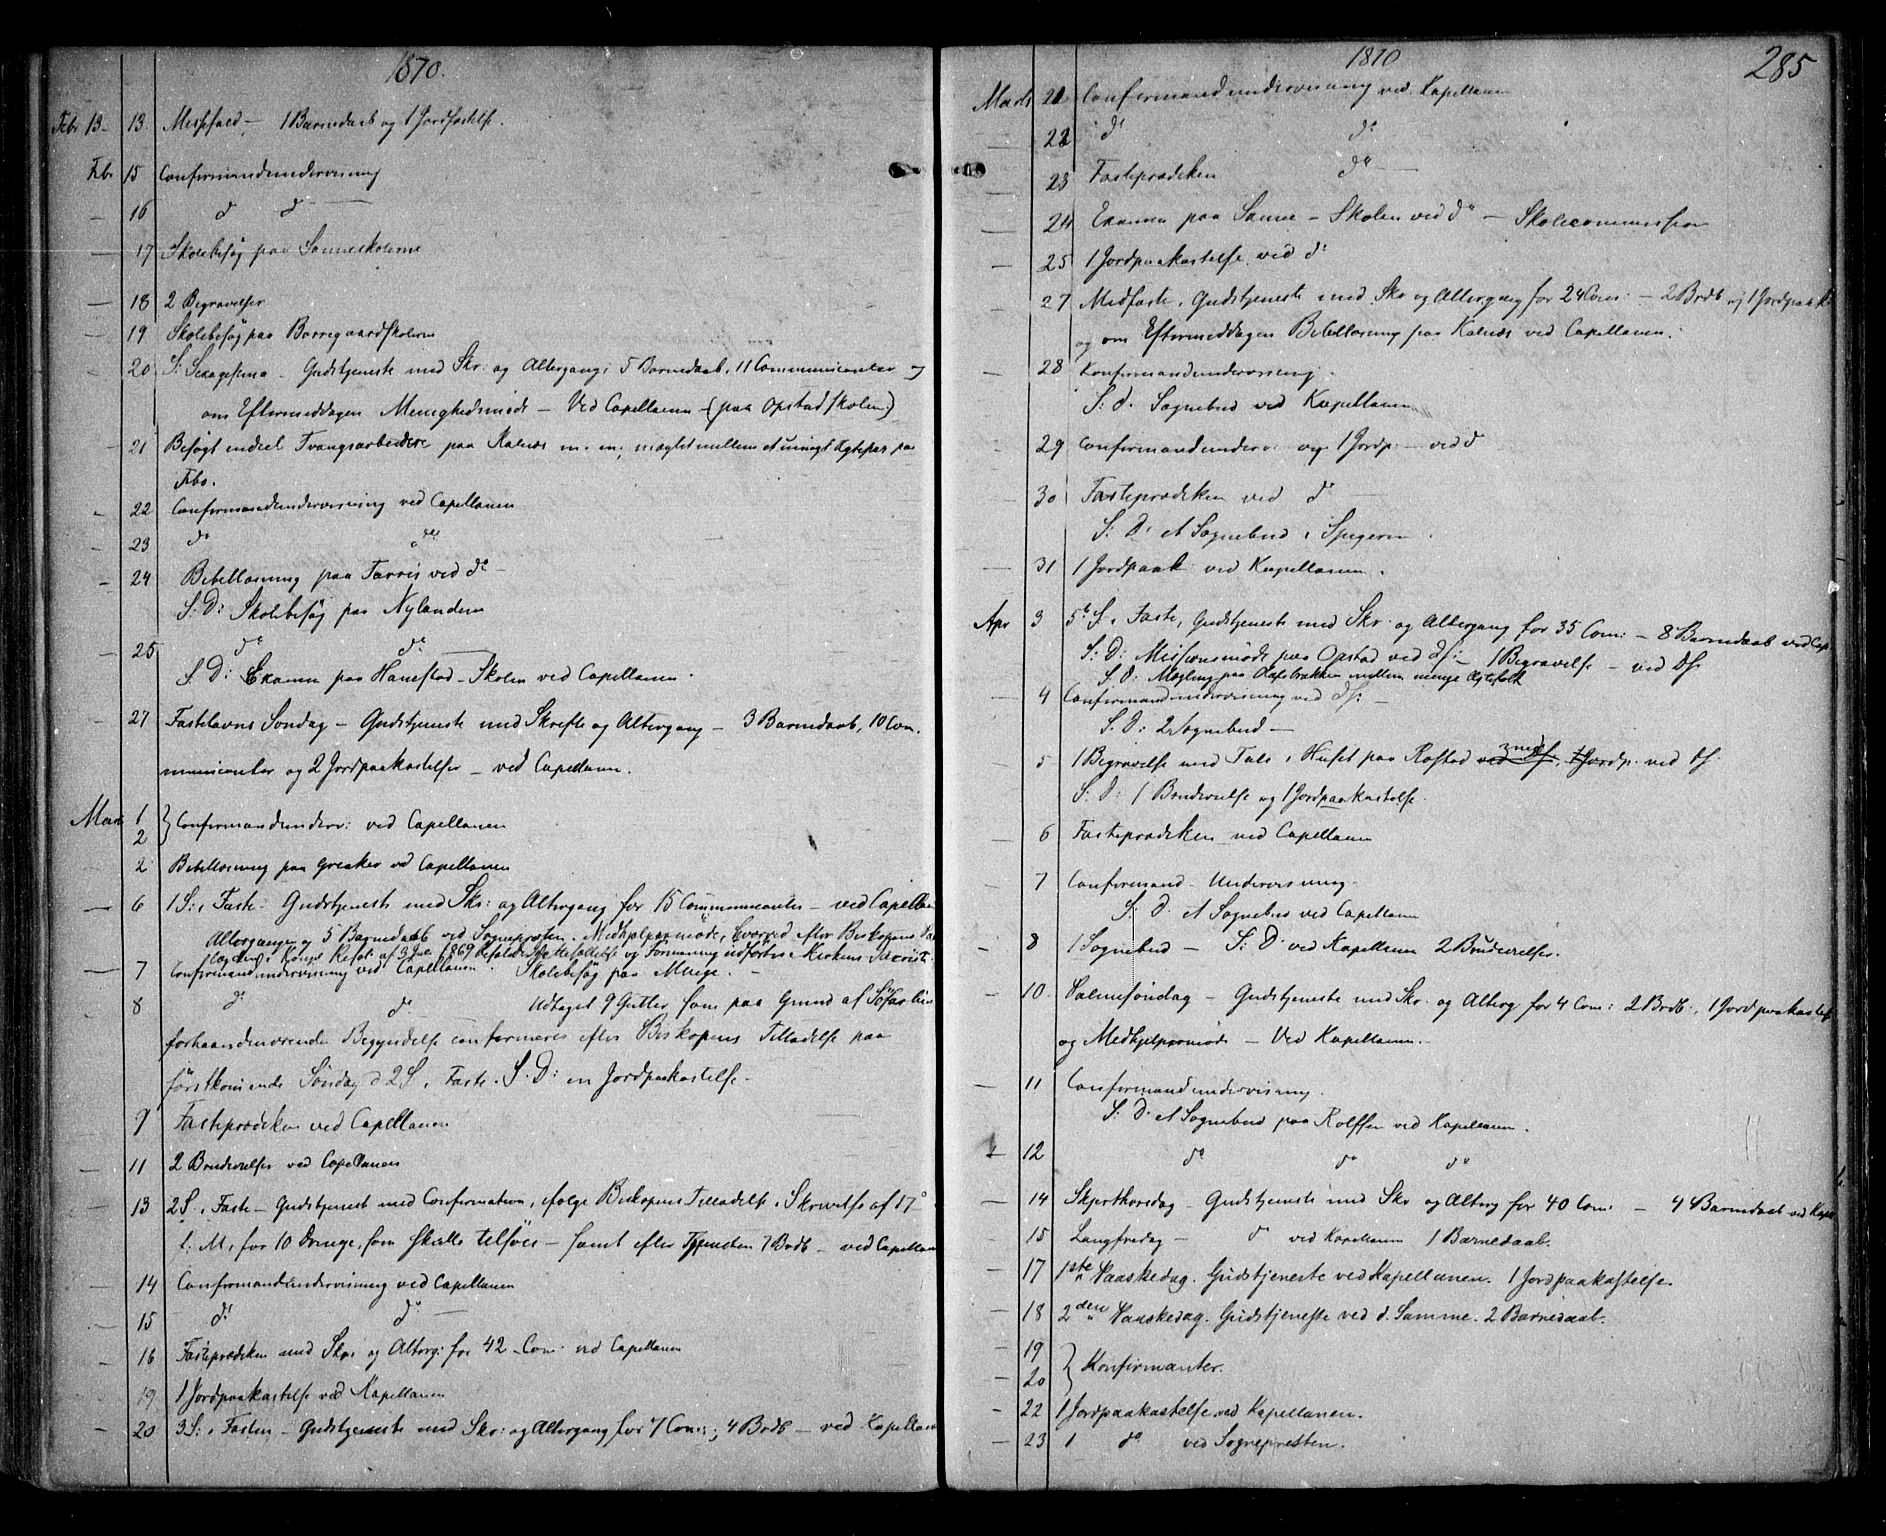 1870.
Febr 13 – 13. Messfald – 1 Barnedaab og 1 Jordfæstelse.
Febr 15 Confirmandundervisning
– 16 d° d° –
– 17 Skolebesøg paa Sanneskolerne
– 18 2 Begravelser
– 19 Skolebesøg paa Borregaardskolerne
– 20 S: Sexagesima – Gudstjeneste med Skr: og Altergang; 5 Barnedaab, 11 Communicanter og
om Eftermeddagen Menighedsmøde – Ved Capellanen – (paa Opstadskolen)
– 21 Besøgt endeel Tvangsarbeidere paa Kalnæs m. m; mæglet mellem et uenigt Ægtepar paa
Fbo.
– 22 Confirmandundervisning ved Capellanen
– 23 d° d°
– 24 Bibellæsning paa Tarris ved d° –
S: D: Skolebesøg paa Nylandene
– 25 d° d°
S. D: Examen paa Hanestad-Skolen ved Capellanen.
27 Fastelavns Søndag – Gudstjeneste med Skrifte og Altergang – 3 Barnedaab, 10 Com-
municanter og 2 Jordpaakastelser – ved Capellanen.
Marts 1
2 } Confirmandunderv: ved Capellanen
2 Bibellæsning paa Greaker ved Capellanen
– 6 1 S: i Faste – Gudstjeneste med Skr: og Altergang for 15 Communicanter – ved Capellan
Altergange og 5 Barnedaab ved Sognepresten. Medhjelpermøde, hvorved efter Biskopens
Kongl Resol: af 3 Juli 1869 og Formaning udføres i Kirkens Sacristi
– 7 Confirmandundervisning ved Capellanen. Skolebesøg paa Minge. –
8 d° d° Udtaget 9 Gutter som paa Grund af Søfartens
forhaandenværende Begyndelse confirmeres efter Biskopens Tilladelse paa
førstkomende Søndag d 2 S. i Faste. S. D: en Jordpaakastelse –
– 9 Fasteprædiken ved Capellanen
– 11 2 Brudevielser ved Capellanen
– 13 2 S. i Faste – Gudstjenest med Confirmation, ifølge Biskopens Tilladelse i Skrivelse af 17
f: M, for 10 Drenge, som skulle tilsøes – samt efter Tjenesten 7 Brdb – ved Capellan
– 14 Confirmandundervisning ved Capellanen
– 15 d° d° –
– 16 Fasteprædiken med Skr: og Alterg: for 42 Com: ved Capellanen
– 19 1 Jordpaakastelse ved Kapellanen
– 20 3 S: i Fasten – Gudstjeneste med Skr: og Altergang for 7 Com:; 4 Brdb – ved Kapellan
1870 285
Marts 21 Confirmandundervisning ved Kapellanen
– 22 d° d°
– 23 Fasteprædiken d° –
– 24 Examen paa Sanne-Skolen ved d° – Skolecommission
– 25 1 Jordpaakastelse ved d°
– 27 Midfaste, Gudstjeneste med Skr og Altergang for 24 Com: – 2 Brdb og 1 Jordpaak
og om Eftermeddagen Bibellæsning paa Kalnæs ved Capellanen.
– 28 Konfirmandundervisning.
S: d. Sognebud ved Kapellanen
– 29 Confirmandunderv: og 1 Jordp. – ved d°
– 30 Fasteprædiken ved d° –
S: D: et Sognebud i Spigeren.
– 31 1 Jordpaak: ved Kapellanen.
Apr 3 5t S. i Faste, Gudstjeneste med Skr og Altergang for 35 Com: – 8 Barnedaab ved Cap
S: D: Missionsmøde paa Opstad ved ds: – 1 Begravelse – ved ds.
S. D: Mægling paa Hafslundbakken mellem uenige Ægtefolk
– 4 Confirmandundervisning ved ds: –
S. D: 2 Sognebud –
– 5 1 Begravelse med Tale i Huset paa Rostad ved ds, 1 Jordp. ved ds.
S. D: 1 Brudevielse og 1 Jordpaakastelse.
– 6 Fasteprædiken ved Capellanen
– 7 Confirmand-Undervisning.
S: D. et Sognebud ved Capellanen
– 8 1 Sognebud – S: D ved Kapellanen 2 Brudevielser.
– 10. Palmesøndag – Gudstjeneste med Skr. og Alterg for 4 Com: 2 Brdb:, 1 Jordpaakastelse
og Medhjelpermøde – Ved Kapellanen. –
– 11 Confirmandundervisning.
S. D. et Sognebud paa Rolfsø ved Kapellanen.
– 12 d° d° d°
– 14 Skjerthorsdag – Gudstjeneste med Skr og Alterg for 40 Com: – 4 Barnedaab ved Kapell
– 15 Langfredag – d° ved Kapellanen 1 Barnedaab.
– 17 1ste Paaskedag. Gudstjeneste ved Kapellanen. 1 Jordpaakastelse.
– 18 2den Paaskedag. Gudstjeneste ved d. Samme. 2 Barnedaab.
– 19
– 20 } Konfirmanter.
– 22 1 Jordpaakastelse ved Kapellanen.
– 23 1 d° ved Sognepresten.